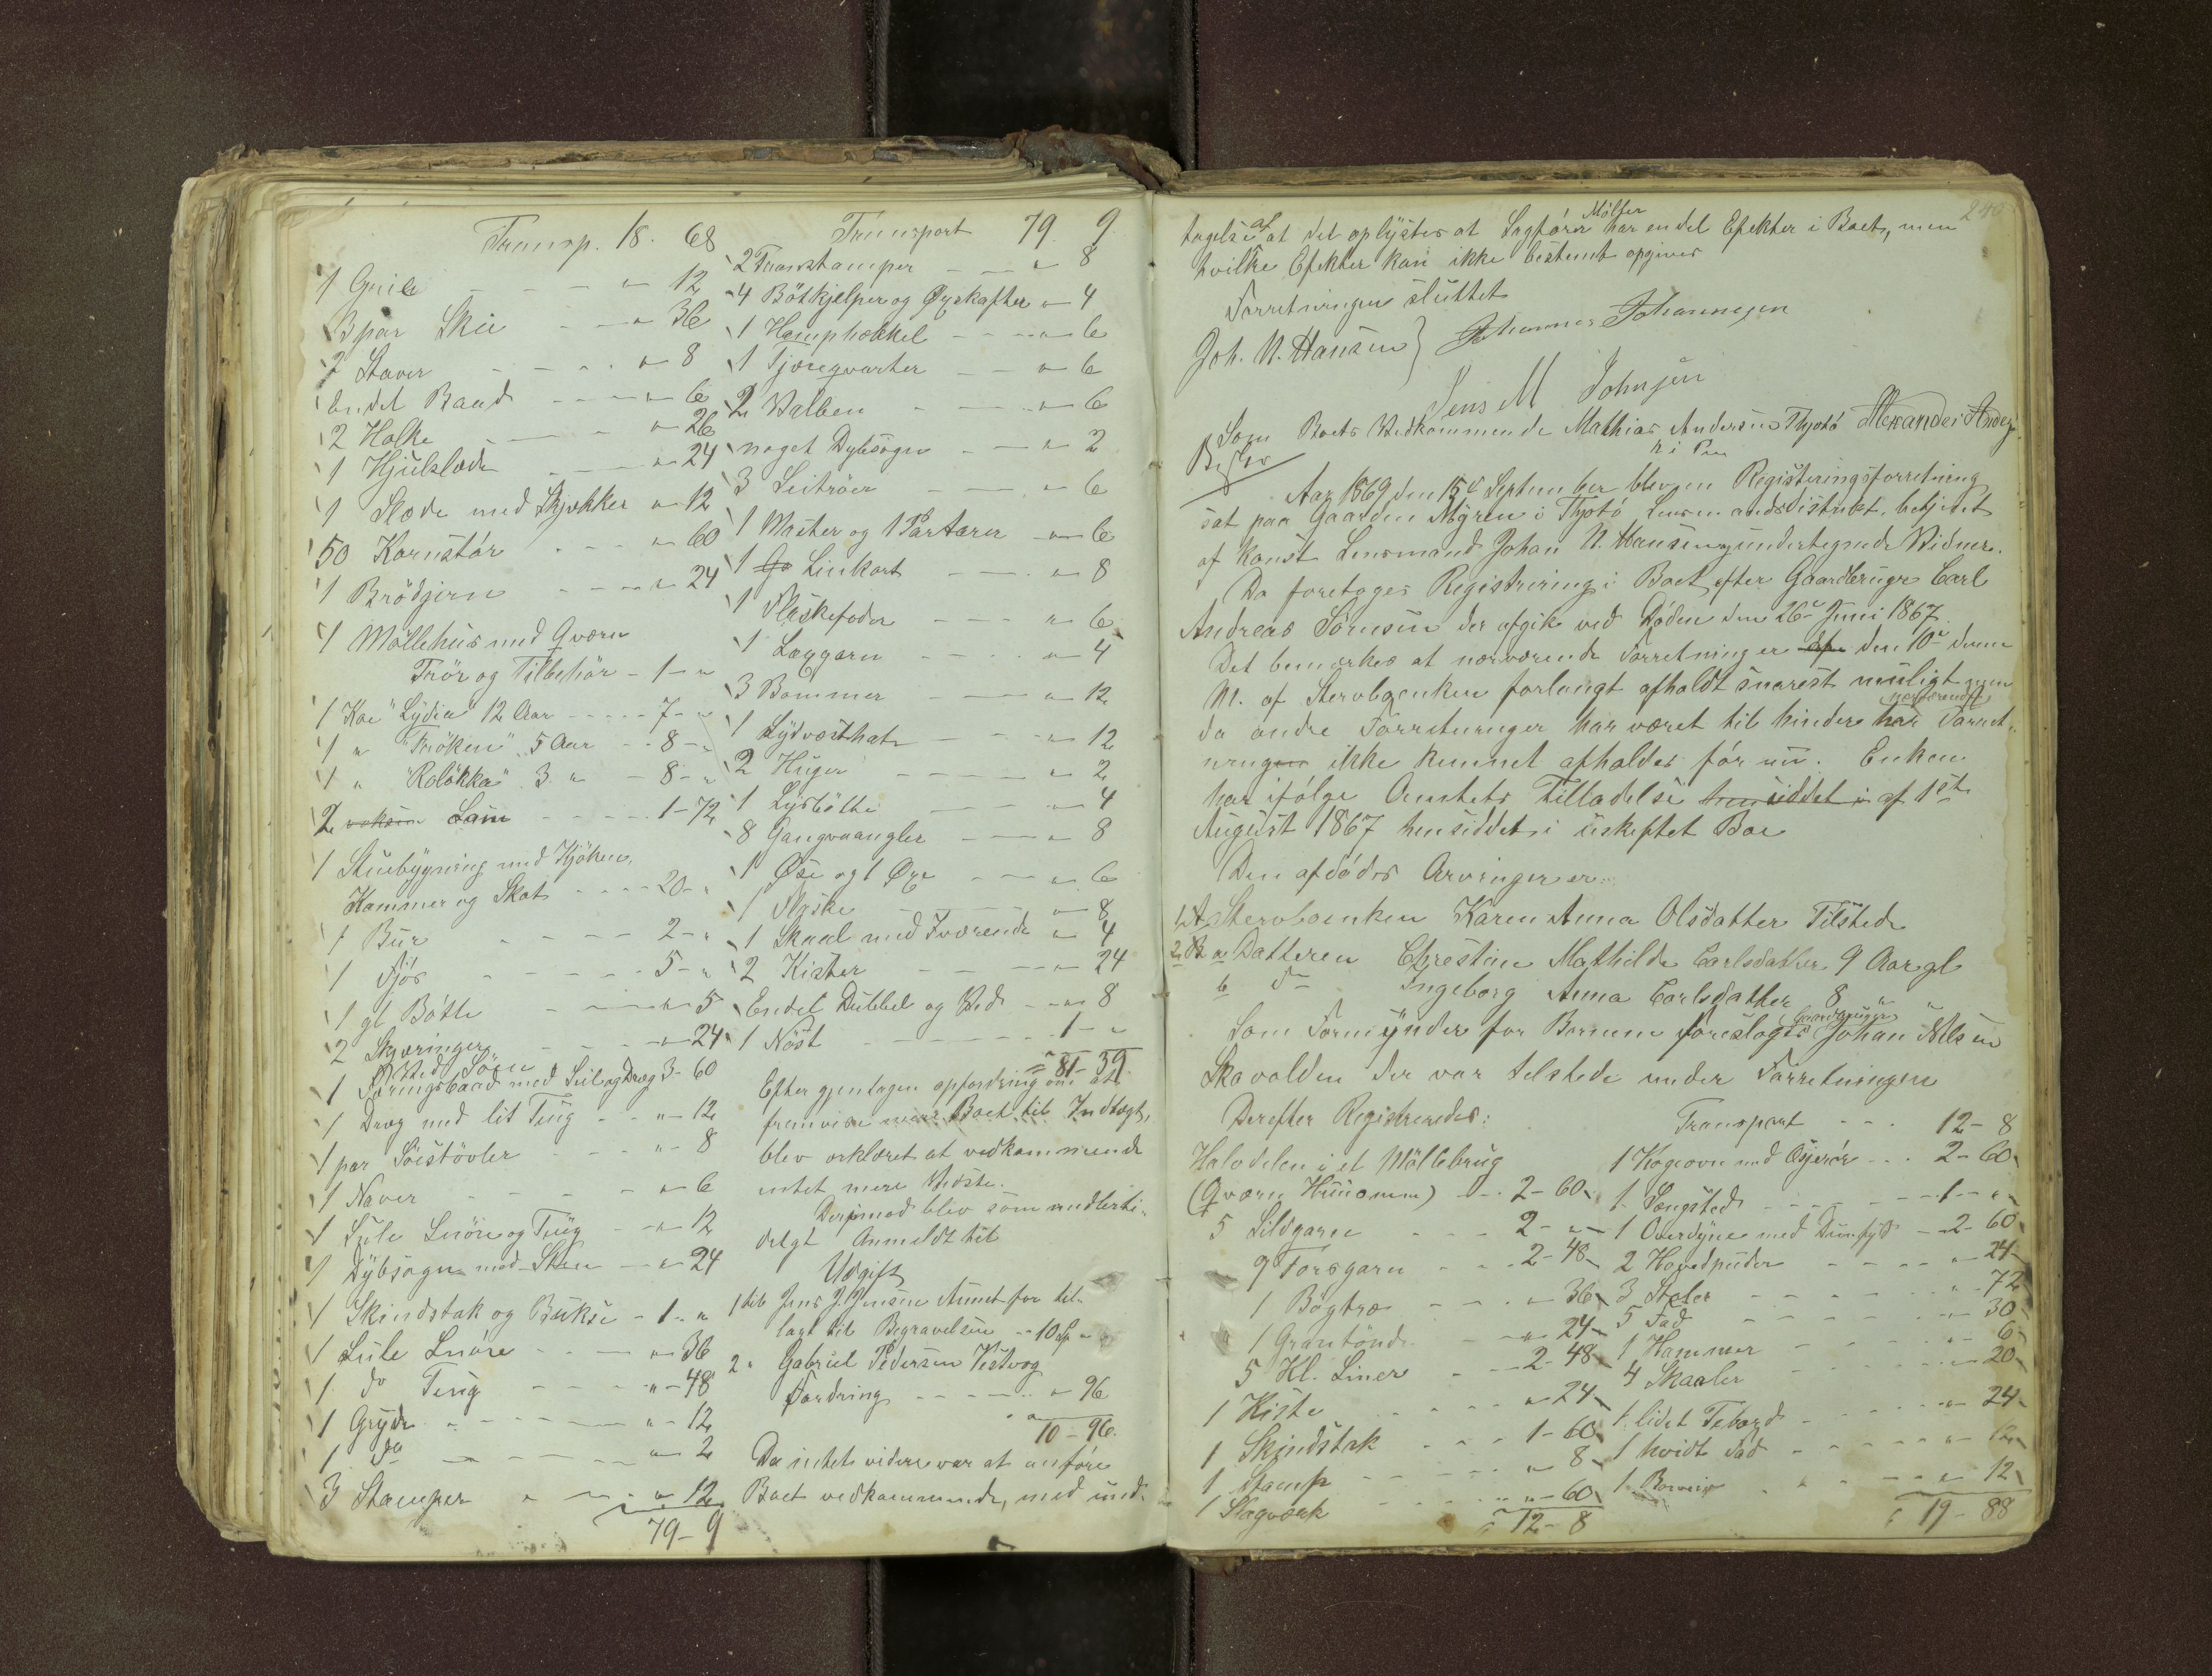 Transp. 18. 68
1 Greie - - - " 12
3 par Skie - - " 36
2 Staver - - - " 8
endel Baand - - - " 6
2 Holke - - - " 26
1 Hjulslæde - - " 24
1 Slæde med Skjekker " 12
50 Kornstör - - - " 60
1 Brödjern - - - " 24
1 Möllehus med Qværn
Trör og Tilbehör - 1 - "
1 Koe "Lydia" 12 Aar - - - 7 - "
1 " "Fröken" 5 Aar - - 8 - "
1 " "Rolökka" 3 " - 8 - "
2 voksne Lam - - - 1 - 72
1 Stuebygning med Kjöken,
Kammer og Skot - - - 20 - "
1 Bur - - - - 2 - "
1 Fjös - - - - 5 - "
1 gl Bötte - - - " - 5
2 Skjæringer - - - " - 24
Ved Söen
1 Færingsbaad med Seil og Dræg 3 - 60
1 Dræg med lit Toug - - " - 12
1 par Söestövler - - " - 8
1 Naver - - - " - 6
1 Sule Snöre og Toug - " - 12
1 Dybsagn med Steen - " - 24
1 Skindstak og Bukse - 1 - "
1 Sule Snöre - - - " - 36
1 do Toug - - - " - 48
1 Gryde - - - " - 12
1 do - - - " - 2
3 Stamper " - - " 12
79 - 9
Transport 79 9
2 Transtamper - - " 8
4 Bötkjelper og Öyskafter " - 4
1 Hamphækkel - - - " - 6
1 Tjæreqvarter - - " - 6
2 Valben - - - " - 6
noget Dybsagn - - " - 2
3 Seitröer - - - " - 6
1 Master og 1 Par Aarer - " - 6
1 Linkort - - - " - 8
1 Flaskefoder - - - " - 6
1 Laxgarn - - - " - 4
3 Bommer - - - " - 12
1 Sydvesthat - - " - 12
2 Huger - - - " - 2
1 Lysbötte - - - " - 4
8 Gangvaangler - - " - 8
1 Öse og 1 Öxe - - - " - 6
1 Flaske - - - " - 8
1 Skaal med Iværende " - 4
2 Kister - - - " - 24
Endel Dubbel og Ved - - " - 8
1 Nöst - - - 1 - "
= 81 - 39
Efter gjentagen opfordring om at
fremvise mere Boet til Indtægt,
blev erklæret at vedkommende
intet mere vidste.
Derimod blev som midlerti-
deligt Anmeldt til
Udgift
1 til Jens J. Jensen Aunet for til-
lagt til Begravelsen - - 10 Sp "
2 " Gabriel Pedersen Vistvog
Fordring - - - " 96
10 - 96
Da intet videre var at anföre
Boet vedkommende, med und-
240
tagelse af at det oplystes at Sagförer Mölfer har en del Efekter i Boet, men
hvilke Efekter kan ikke bestemt opgives
Forretningen sluttet
Joh. N. Hansen } Johannes Johannesen
Jens M Johnsen
Som Boets Vedkommende Mathias Andersen Thjotö Alexander Anders
h i Pen
Aar 1869 den 15de September blev en Registeringsforretning
sat paa Gaarden Myren i Thjotö Lensmandsdistrikt, betjent
af konst Lensmand Johan N. Hansen og undertegnede Vidner.
Da foretoges Registrering i Boet efter Gaardbruger Carl
Andreas Sörensen der afgik ved Döden den 26de Juni 1867.
Det bemærkes at nærværende Forretning er den 10de denne
M. af Stervboenken forlangt afholdt snarest muligt men
da andre Forretninger har været til hinder har nærværende Forret-
ning ikke kunnet afholdes för nu. Enken
har ifölge Amtets Tilladelse hensiddet i af 1ste
August 1867 hensiddet i uskiftet Boe
Den afdödes Arvinger er:
1 A Stervboenken Karen Anna Olsdatter Tilstede
2 B a Datteren Christine Mathilde Carlsdatter 9 Aar gl
b do Ingeborg Anna Carlsdatter 8 " "
Som Formynder for Börnene foresloges Gaardbruger Johan Nilsen
Skavolden der var tilstede under Forretningen
Derefter Registreredes:
Halvdelen i et Möllebrug
(Qværn Huus m m) - - 2 - 60
5 Sildgarn - - 2 - "
9 Torsgarn - - - 2 - 48
1 Bögtræ - - - " 36
1 Grantönde - - " 24
5 Kl. Liner - - 2 - 48
1 Kiste - - - " 24
1 Skindstak - - - 1 - 60
1 Stamp - - - " 8
1 Slagvæk - - - " - 60
= 12 - 8
Transport - - - 12 - 8
1 Kogeovn med Ösjerör - - 2 - 60
1 Sengsted - - - - 1 - "
1 Overdyne med Duunfyld - 2 - 60
2 Hovedpuder - - - " 24
3 Stoler - - - " - 72
5 Fad - - - " - 30
1 Hammer - - - " - 6
4 Skaaler - - - " - 20
1 lidet Tebord - - - " - 24
1 hvidt Fad - - - " - 12
1 - - - " 12
= 19 - 88